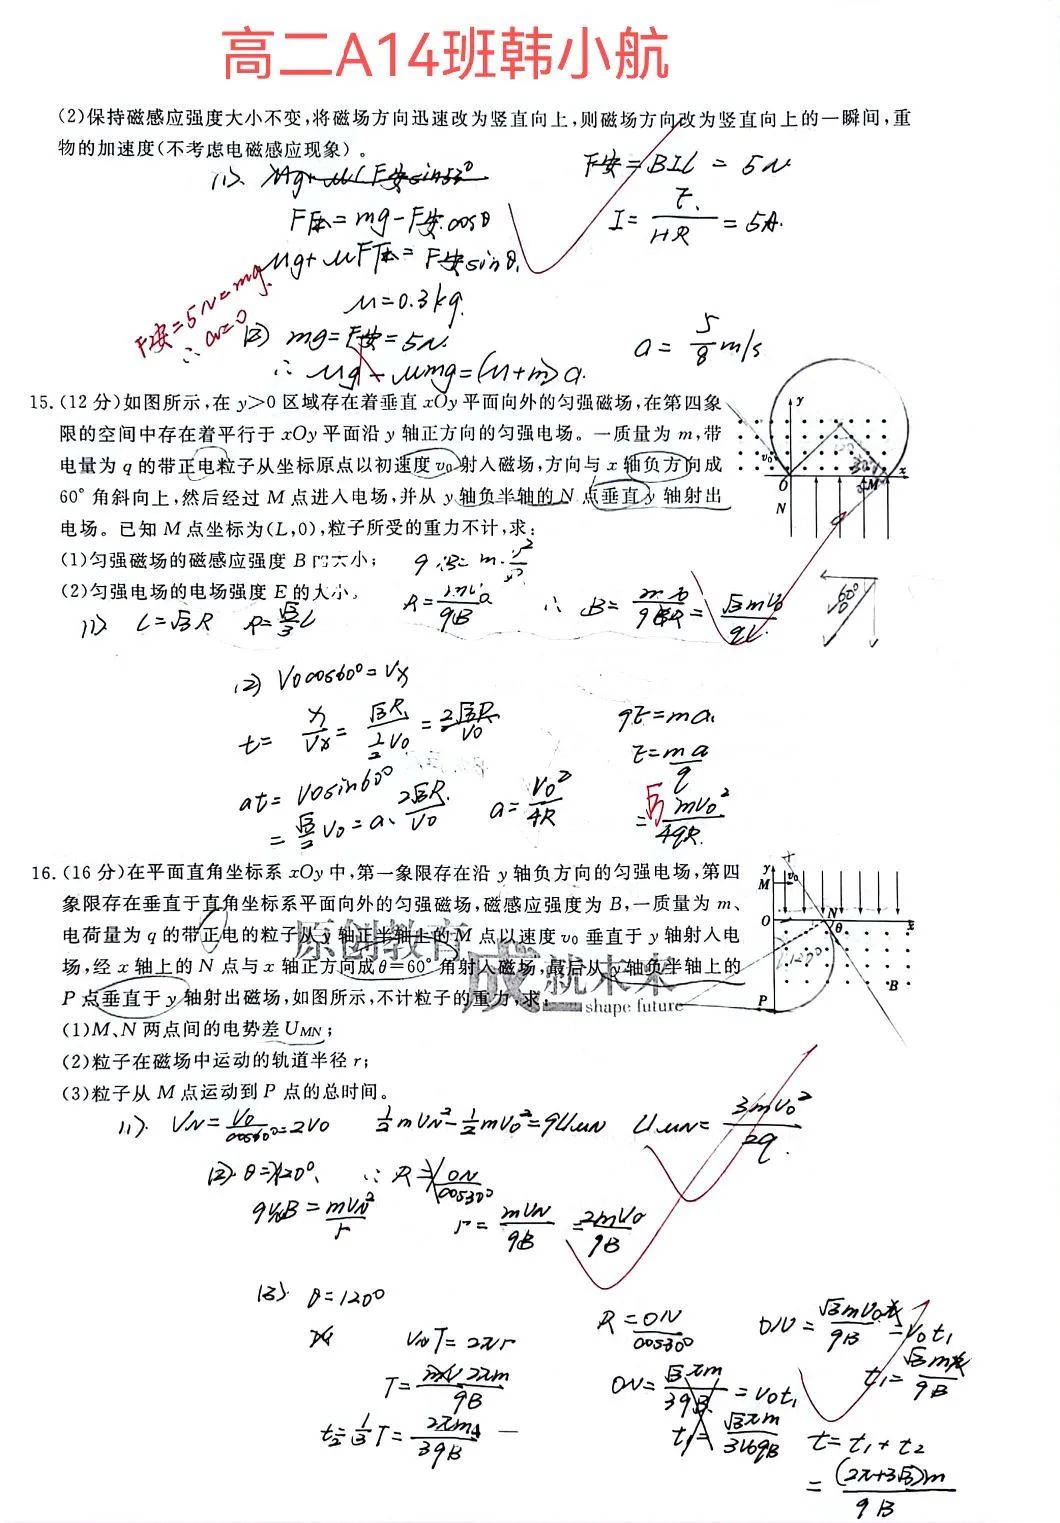 高二A14班韩小航
(2)保持磁感应强度大小不变,将磁场方向迅速改为竖直向上,则磁场方向改为竖直向上的一瞬间,重
物的加速度(不考虑电磁感应现象)。
F安=BIL=5N
F压=mg-F安cosθ
I=E/(R+R)=5A.
Mg+μF压=F安sinθ.
M=0.3kg.
F安=5N=mg.
∴a=0
(2) mg=F安=5N.
a=5/8 m/s
∴Mg-μmg=(M+m)a.
15.(12分)如图所示,在y>0区域存在着垂直xOy平面向外的匀强磁场,在第四象
限的空间中存在着平行于xOy平面沿y轴正方向的匀强电场。一质量为m,带
电量为q的带正电粒子从坐标原点以初速度v0射入磁场,方向与x轴负方向成
60°角斜向上,然后经过M点进入电场,并从y轴负半轴的N点垂直y轴射出
电场。已知M点坐标为(L,0),粒子所受的重力不计,求:
(1)匀强磁场的磁感应强度B的大小;
(2)匀强电场的电场强度E的大小。
y
v0
O
M
x
N
60°
(1) L=√3R R=√3/3 L
∴B=mv0/qR=√3mv0/qL
(2) V0cos60°=Vx
t=x/Vx=√3R/(1/2 V0)=2√3R/V0
qE=ma
E=ma/q
at=V0sin60°
=√3/2 V0=a·2√3R/V0
a=V0²/4R
=√3mV0²/4qR
16.(16分)在平面直角坐标系xOy中,第一象限存在沿y轴负方向的匀强电场,第四
象限存在垂直于直角坐标系平面向外的匀强磁场,磁感应强度为B,一质量为m、
电荷量为q的带正电的粒子从y轴正半轴上的M点以速度v0垂直于y轴射入电
场,经x轴上的N点与x轴正方向成θ=60°角射入磁场,最后从y轴负半轴上的
P点垂直于y轴射出磁场,如图所示,不计粒子的重力,求:
原创教育
成就未来
shape future
(1)M、N两点间的电势差UMN;
(2)粒子在磁场中运动的轨道半径r;
(3)粒子从M点运动到P点的总时间。
y
M
v0
O
N
θ
x
120°
B
P
(1). VN=V0/cos60°=2V0 1/2mVN²-1/2mV0²=qUMN UMN=3mV0²/2q.
(2). θ=120°. ∴R=ON/cos30°
qVNB=mVN²/r
r=mVN/qB=2mV0/qB
(3). θ=120°
R=ON/cos30°
ON=√3mV0/qB=V0t1
VNT=2πr
T=2πm/qB
ON=√3πm/3qB=V0t1
t1=√3m/qB
t2=1/3T=2πm/3qB
t=t1+t2
=(2π+3√3)m/qB